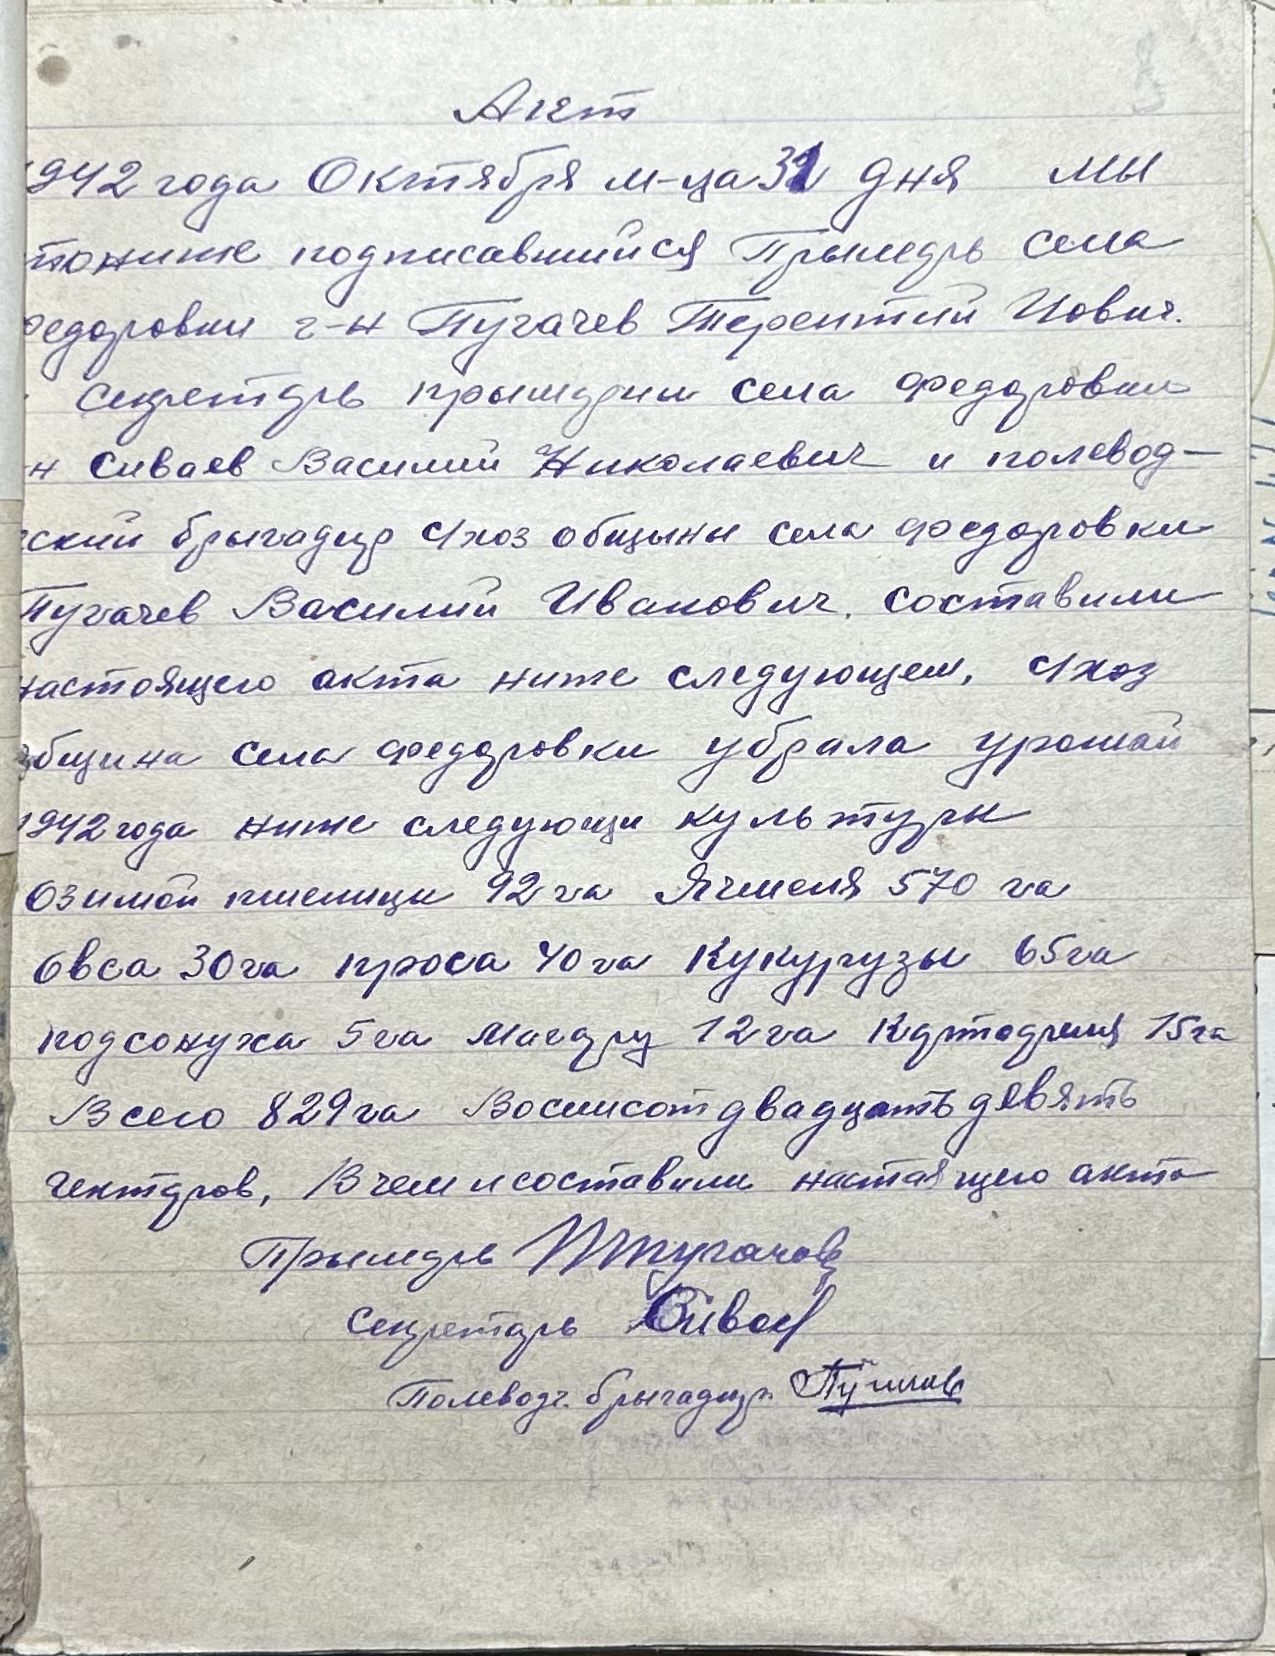 Акт
1942 года Октября м-ца 31 дня мы
тонише подписавшийся Прымарь села
Федоровки г-н Пугачев Терентий Иович.
Секретарь прымарии села Федоровки
н Сиваев Василий Николаевич и полевод-
ский бригадир с/хоз общины села Федоровки
Пугачев Василий Иванович. составили
настоящего акта ниже следующем, с/хоз
община села Федоровки убрала урожай
1942 года ниже следующи культуры
Озимой пшеници 92 га Ячменя 570 га
Овса 30 га проса 40 га Кукурузы 65 га
подсонуха 5 га Магару 12 га Картофеля 15 га
Всего 829 га Восимсот двадцать девять
гектаров, В чем и составили настаящего акта
Прымарь Пугачов
Секретарь Сиваев
Полеводч. бригадир. Пугачев